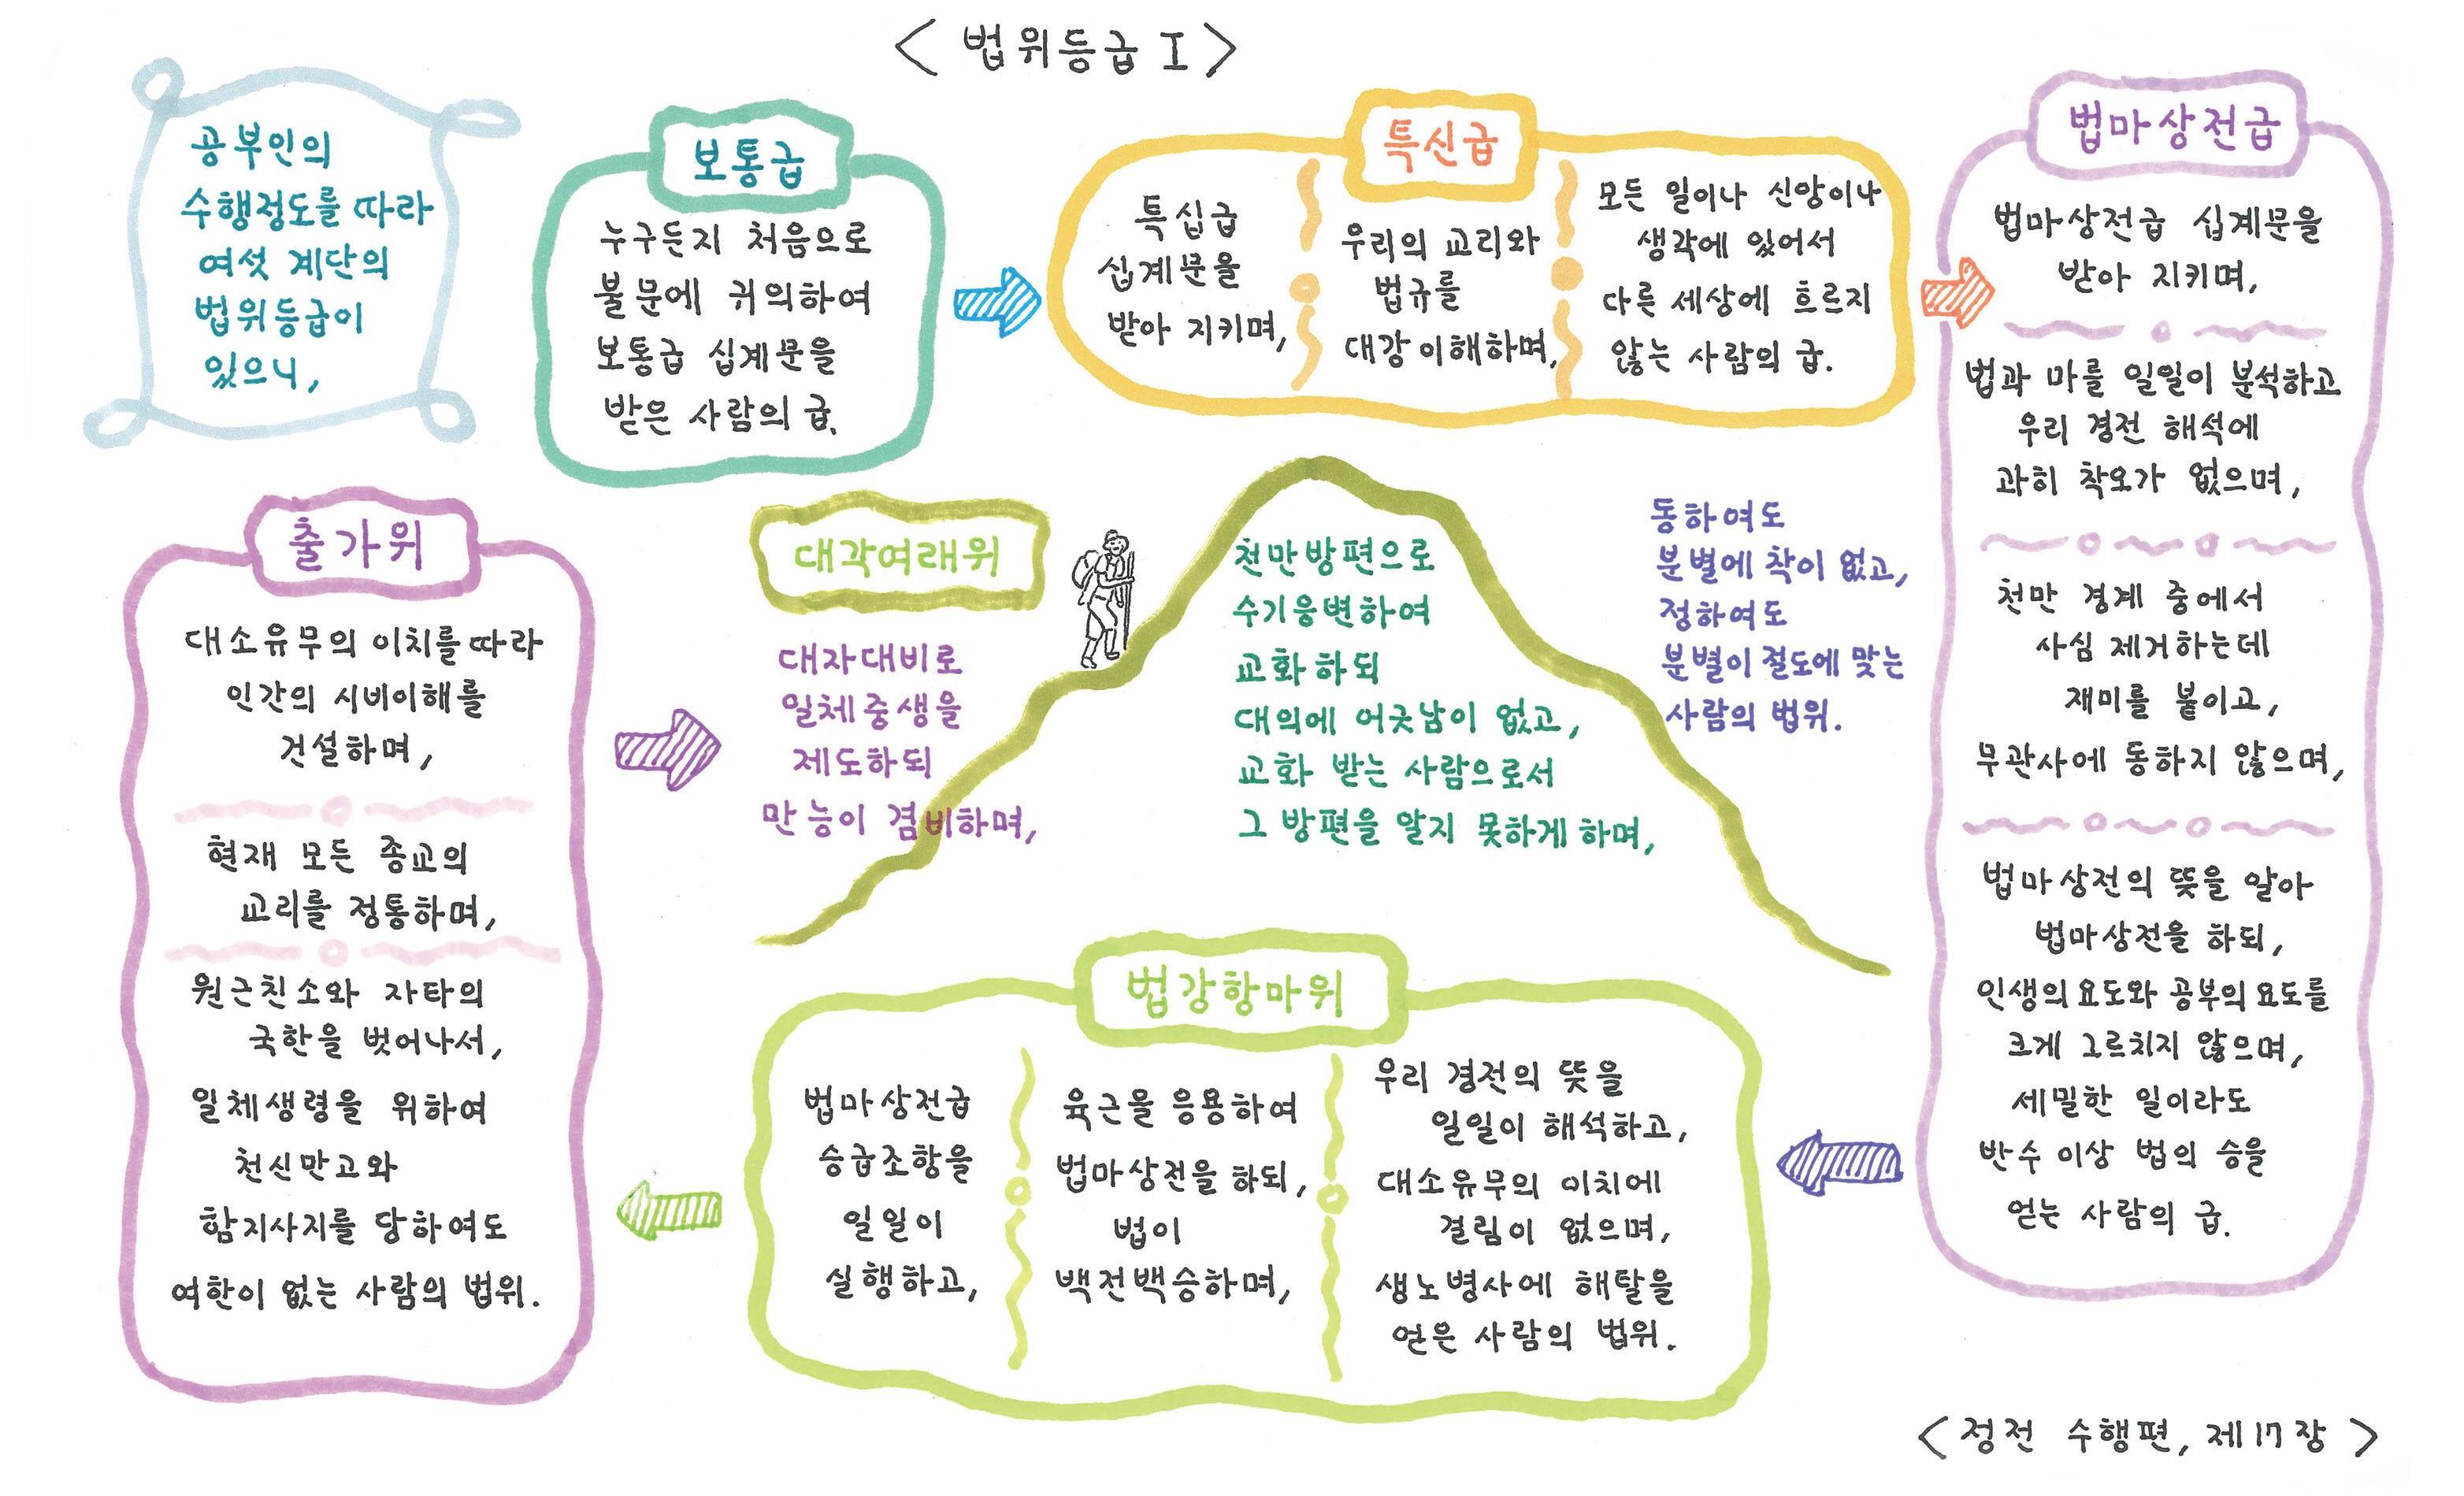 < 법위등급 I >
공부인의
수행정도를 따라
여섯 계단의
법위등급이
있으니,
보통급
누구든지 처음으로
불문에 귀의하여
보통급 십계문을
받은 사람의 급.
특신급
특십급
십계문을
받아 지키며,
우리의 교리와
법규를
대강 이해하며,
모든 일이나 신앙이나
생각에 있어서
다른 세상에 흐르지
않는 사람의 급.
법마상전급
법마상전급 십계문을
받아 지키며,
법과 마를 일일이 분석하고
우리 경전 해석에
과히 착오가 없으며,
천만 경계 중에서
사심 제거하는데
재미를 붙이고,
무관사에 동하지 않으며,
법마상전의 뜻을 알아
법마상전을 하되,
인생의 요도와 공부의 요도를
크게 그르치지 않으며,
세밀한 일이라도
반수 이상 법의 승을
얻는 사람의 급.
법강항마위
법마상전급
승급조항을
일일이
실행하고,
육근을 응용하여
법마상전을 하되,
법이
백전백승하며,
우리 경전의 뜻을
일일이 해석하고,
대소유무의 이치에
걸림이 없으며,
생노병사에 해탈을
얻은 사람의 법위.
출가위
대소유무의 이치를 따라
인간의 시비이해를
건설하며,
현재 모든 종교의
교리를 정통하며,
원근친소와 자타의
국한을 벗어나서,
일체생령을 위하여
천신만고와
함지사지를 당하여도
여한이 없는 사람의 법위.
대각여래위
대자대비로
일체중생을
제도하되
만능이 겸비하며,
천만방편으로
수기응변하여
교화하되
대의에 어긋남이 없고,
교화 받는 사람으로서
그 방편을 알지 못하게 하며,
동하여도
분별에 착이 없고,
정하여도
분별이 절도에 맞는
사람의 법위.
< 정전 수행편, 제17장 >